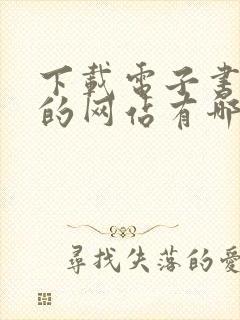 下載電子書
的网佔有哪
尋找失落的愛